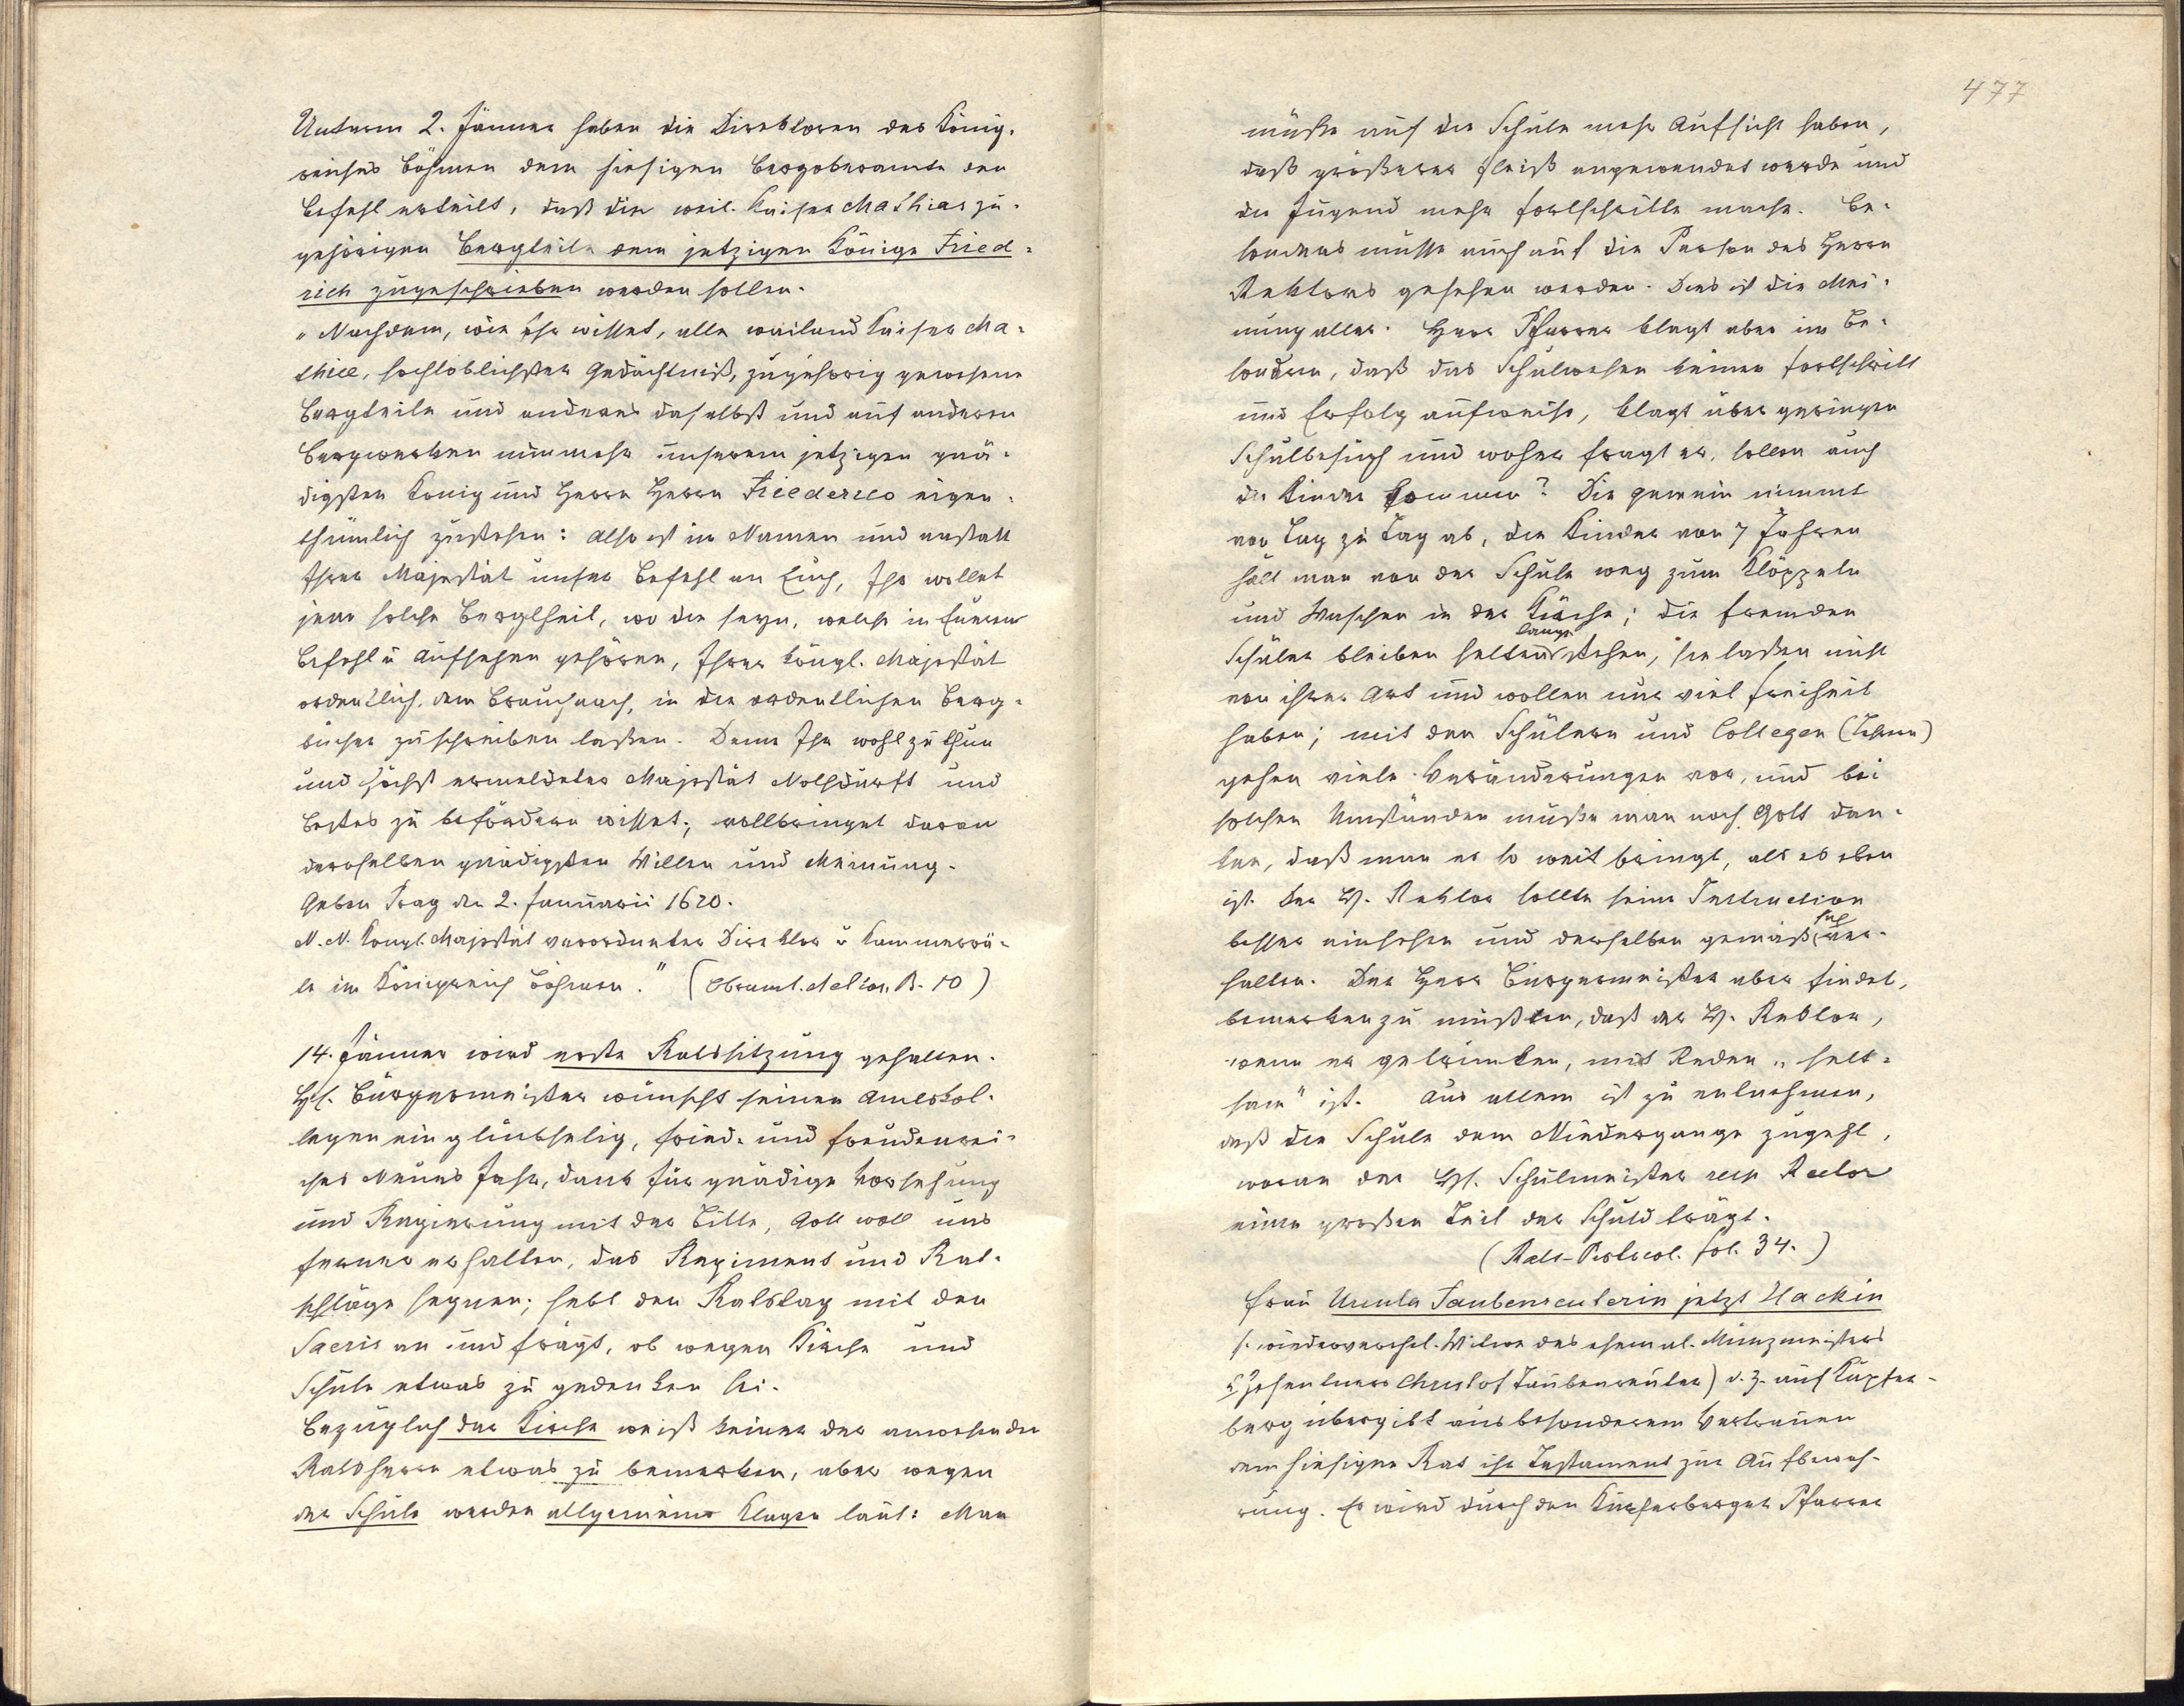 Unterm 2. Jänner haben die Direktoren des König-
reiches Böhmen dem hiesigen Bergoberamte den
Befehl erteilt, daß die weil. Kaiser Mathias zu-
gehörigen Bergteile dem jetzigen Könige Fried-
rich zugeschrieben werden sollen.
"Nachdem, wie Ihr wisset, alle weiland Kaiser Ma-
thiae, hochlöblichster Gedächtniß, zugehörig gewesene
Bergteile und anderes daselbst und auf anderen
Bergwerken nunmehr unserem jetzigen gnä-
digsten König und Herrn Herrn Friederico eigen-
thümlich zustehen: Also ist im Namen und anstatt
Ihrer Majestät unser Befehl an Euch, Ihr wollet
jene solche Bergtheil, wo die seyn, welche in Eueren
Befehl u Aufsehen gehören, Ihrer Königl. Majestät
ordentlich, dem Brauch nach, in die ordentlichen Berg-
bücher zuschreiben laßen. Denn Ihr wohl zu thun
und höchst ermeldeter Majestät Nothdurft und
Bestes zu befördern wisset; vollbringet daran
deroselben gnädigsten Willen und Meinung.
Geben Prag den 2. Januarii 1620.
N. N. Königl. Majestät verordneter Direktor u Kammerrä-
te im Königreich Böhmen." (Oberamt. Action. B. 10)
14. Jänner wird erste Ratssitzung gehalten.
H. Bürgermeister wünscht seinen Amtskol-
legen ein glückselig, fried- und freudenrei-
ches Neues Jahr, dankt für gnädige Vorsehung
und Regierung mit der Bitte, Gott woll uns
ferner erhalten, das Regiment und Rat-
schläge segnen; hebt den Ratstag mit den
Sacris an und frägt, ob wegen Kirche und
Schule etwas zu gedenken sei.
Bezüglich der Kirche weiß keiner der anwesenden
Ratsherrn etwas zu bemerken, aber wegen
der Schule werden allgemeine Klagen laut: Man
477
müße auf die Schule mehr Aufsicht haben,
daß größerer Fleiß angewendet werde und
die Jugend mehr Fortschritte mache. Be-
sonders müsse auch auf die Person des Herrn
Rektors gesehen werden. Dies ist die Mei-
nung aller. Herr Pfarrer klagt aber im Be-
sondern, daß das Schulwesen keinen Fortschritt
und Erfolg aufweise, klagt über geringen
Schulbesuch und woher fragt er, sollen auch
die Kinder kommen? Die Gemein nimmt
von Tag zu Tag ab, die Kinder von 7 Jahren
hält man von der Schule weg zum Klöppeln
und Waschen in der Küche; die fremden
Schüler bleiben selten lange stehen, sie laßen nicht
von ihrer Art und wollen nur viel Freiheit
haben; mit den Schülern und Collegen (Lehrern)
gehen viele Veränderungen vor, und bei
solchen Umständen müße man noch Gott dan-
ken, daß man es so weit bringt, als es eben
ist. Der H. Rektor sollte seine Instruction
besser einsehen und derselben gemäß sich ver-
halten. Der Herr Bürgermeister aber findet,
bemerken zu müßen, daß der H. Rektor,
wenn er getrunken, mit Reden "selt-
sam" ist. Aus allem ist zu entnehmen,
daß die Schule dem Niedergange zugeht,
woran der H. Schulmeister resp Rector
einen großen Teil der Schuld trägt.
(Rats-Protocol. fol. 34.)
Frau Ursula Taubenreuterin jetzt Hackin
(wiederverehel. Witwe des ehemal. Münzmeisters
u Zehentners Christof Taubenreuter) d. z. auf Kupfer-
berg übergibt aus besonderem Vertrauen
dem hiesigen Rat ihr Testament zur Aufbewah-
rung. Es wird durch den Kupferberger Pfarrer